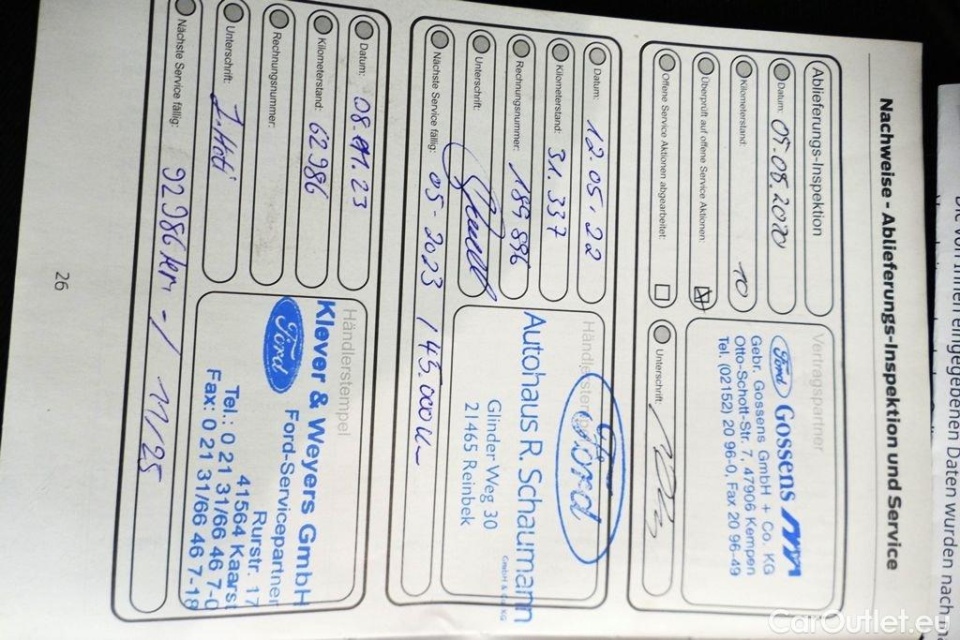 Nachweise - Ablieferungs-Inspektion und Service
Ablieferungs-Inspektion
Datum: 05.08.2020
Kilometerstand: 10
Überprüft auf offene Service Aktionen:
Offene Service Aktionen abgearbeitet:
Vertragspartner
Ford GOSSENS
Gebr. Gossens GmbH + Co. KG
Otto-Schott-Str. 7, 47906 Kempen
Tel. (02152) 20 96-0, Fax 20 96-49
Unterschrift:
Datum: 12.05.22
Kilometerstand: 31.337
Rechnungsnummer: 189896
Unterschrift:
Nächste Service fällig: 05-2023 / 45.000 u-
Ford
Autohaus R. Schaumann
GmbH & Co. KG
Glinder Weg 30
21465 Reinbek
Datum: 08.11.23
Kilometerstand: 62986
Rechnungsnummer:
Unterschrift:
Nächste Service fällig: 92.986 km - / 11/25
Händlerstempel
Klever & Weyers GmbH
Ford Ford-Servicepartner
Rurstr. 17
41564 Kaarst
Tel.: 0 21 31/66 46 7-0
Fax: 0 21 31/66 46 7-18
26
CarOutlet.eu